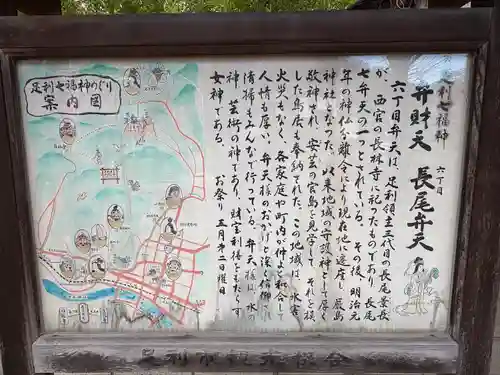 足利七福神めぐり
案内図
足利七福神
六丁目
弁財天 長尾弁天
六丁目弁天は、足利領主三代目の長尾景長
が、西宮の長林寺に祀ったものであり、長尾
七弁天の一つとされている。その後、明治元
年の神仏分離令により現在地に遷座し、厳島
神社となった。以来地域の守護神として厚く
敬神され、安芸の宮島を見学し、それを模
した鳥居も奉納された。この地域は、水害
火災もなく、各家庭や町内が仲よく和合し
人情も厚い。弁天様のおかげと深く信仰
清掃もよく行っている。弁天様は、水の
神、芸術の神であり、財宝利得をもたらす
女神である。
お祭り 五月第二日曜日